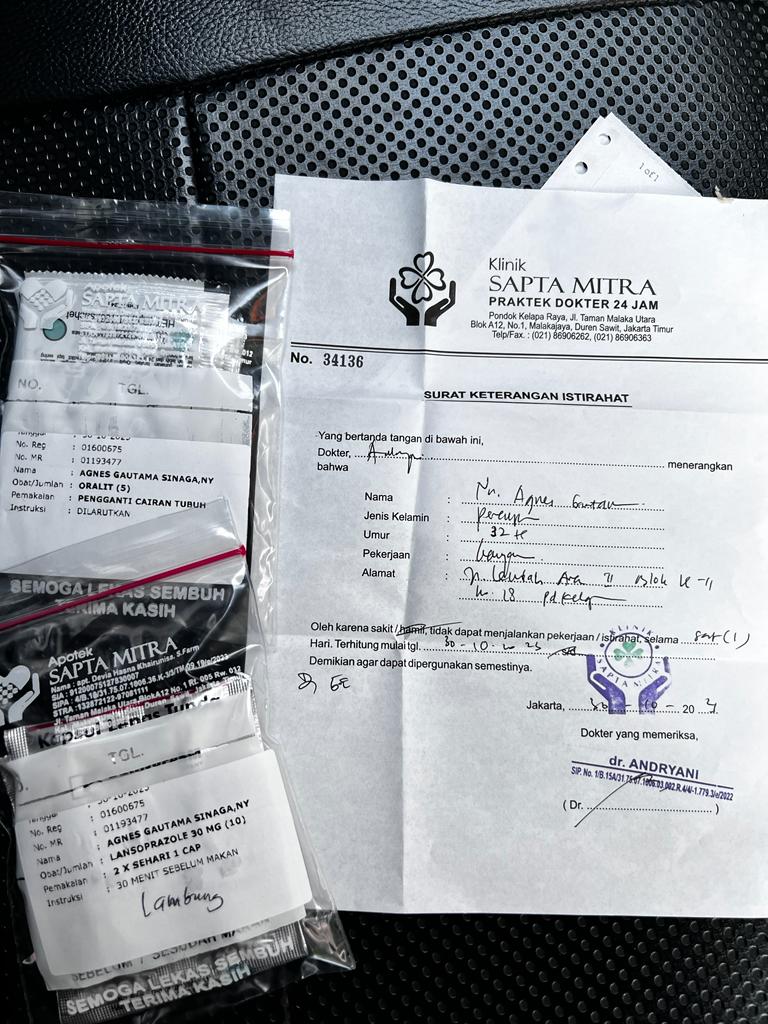 1 of 1
Klinik
SAPTA MITRA
PRAKTEK DOKTER 24 JAM
Pondok Kelapa Raya, Jl. Taman Malaka Utara
Blok A12, No.1, Malakajaya, Duren Sawit, Jakarta Timur
Telp/Fax. : (021) 86906262, (021) 86906363
No. 34136
SURAT KETERANGAN ISTIRAHAT
Yang bertanda tangan di bawah ini,
Dokter, menerangkan
bahwa
Nama : Ny. Agnes Gautama
Jenis Kelamin : Perempuan
Umur : 32 th
Pekerjaan :
Alamat :
No 18 Pd. Kelapa
Oleh karena sakit / hamil, tidak dapat menjalankan pekerjaan / istirahat, selama satu (1)
Hari. Terhitung mulai tgl. 30-10-2023 s/d
Demikian agar dapat dipergunakan semestinya.
KLINIK
SAPTA MITRA
Jakarta, 30-10-2023
Dokter yang memeriksa,
dr. ANDRYANI
(Dr. )
Apotek
SAPTA MITRA
NO. TGL.
No. Reg : 01600675
No. MR : 01193477
Nama : AGNES GAUTAMA SINAGA,NY
Obat/Jumlah : ORALIT (5)
Pemakaian : PENGGANTI CAIRAN TUBUH
Instruksi : DILARUTKAN
SEMOGA LEKAS SEMBUH
TERIMA KASIH
Apotek
SAPTA MITRA
Nama : apt. Devia Hasna Khairunisa. S.Farm
TGL.
No. Reg : 01600675
No. MR : 01193477
Nama : AGNES GAUTAMA SINAGA,NY
Obat/Jumlah : LANSOPRAZOLE 30 MG (10)
Pemakaian : 2 X SEHARI 1 CAP
Instruksi : 30 MENIT SEBELUM MAKAN
Lambung
SEMOGA LEKAS SEMBUH
TERIMA KASIH